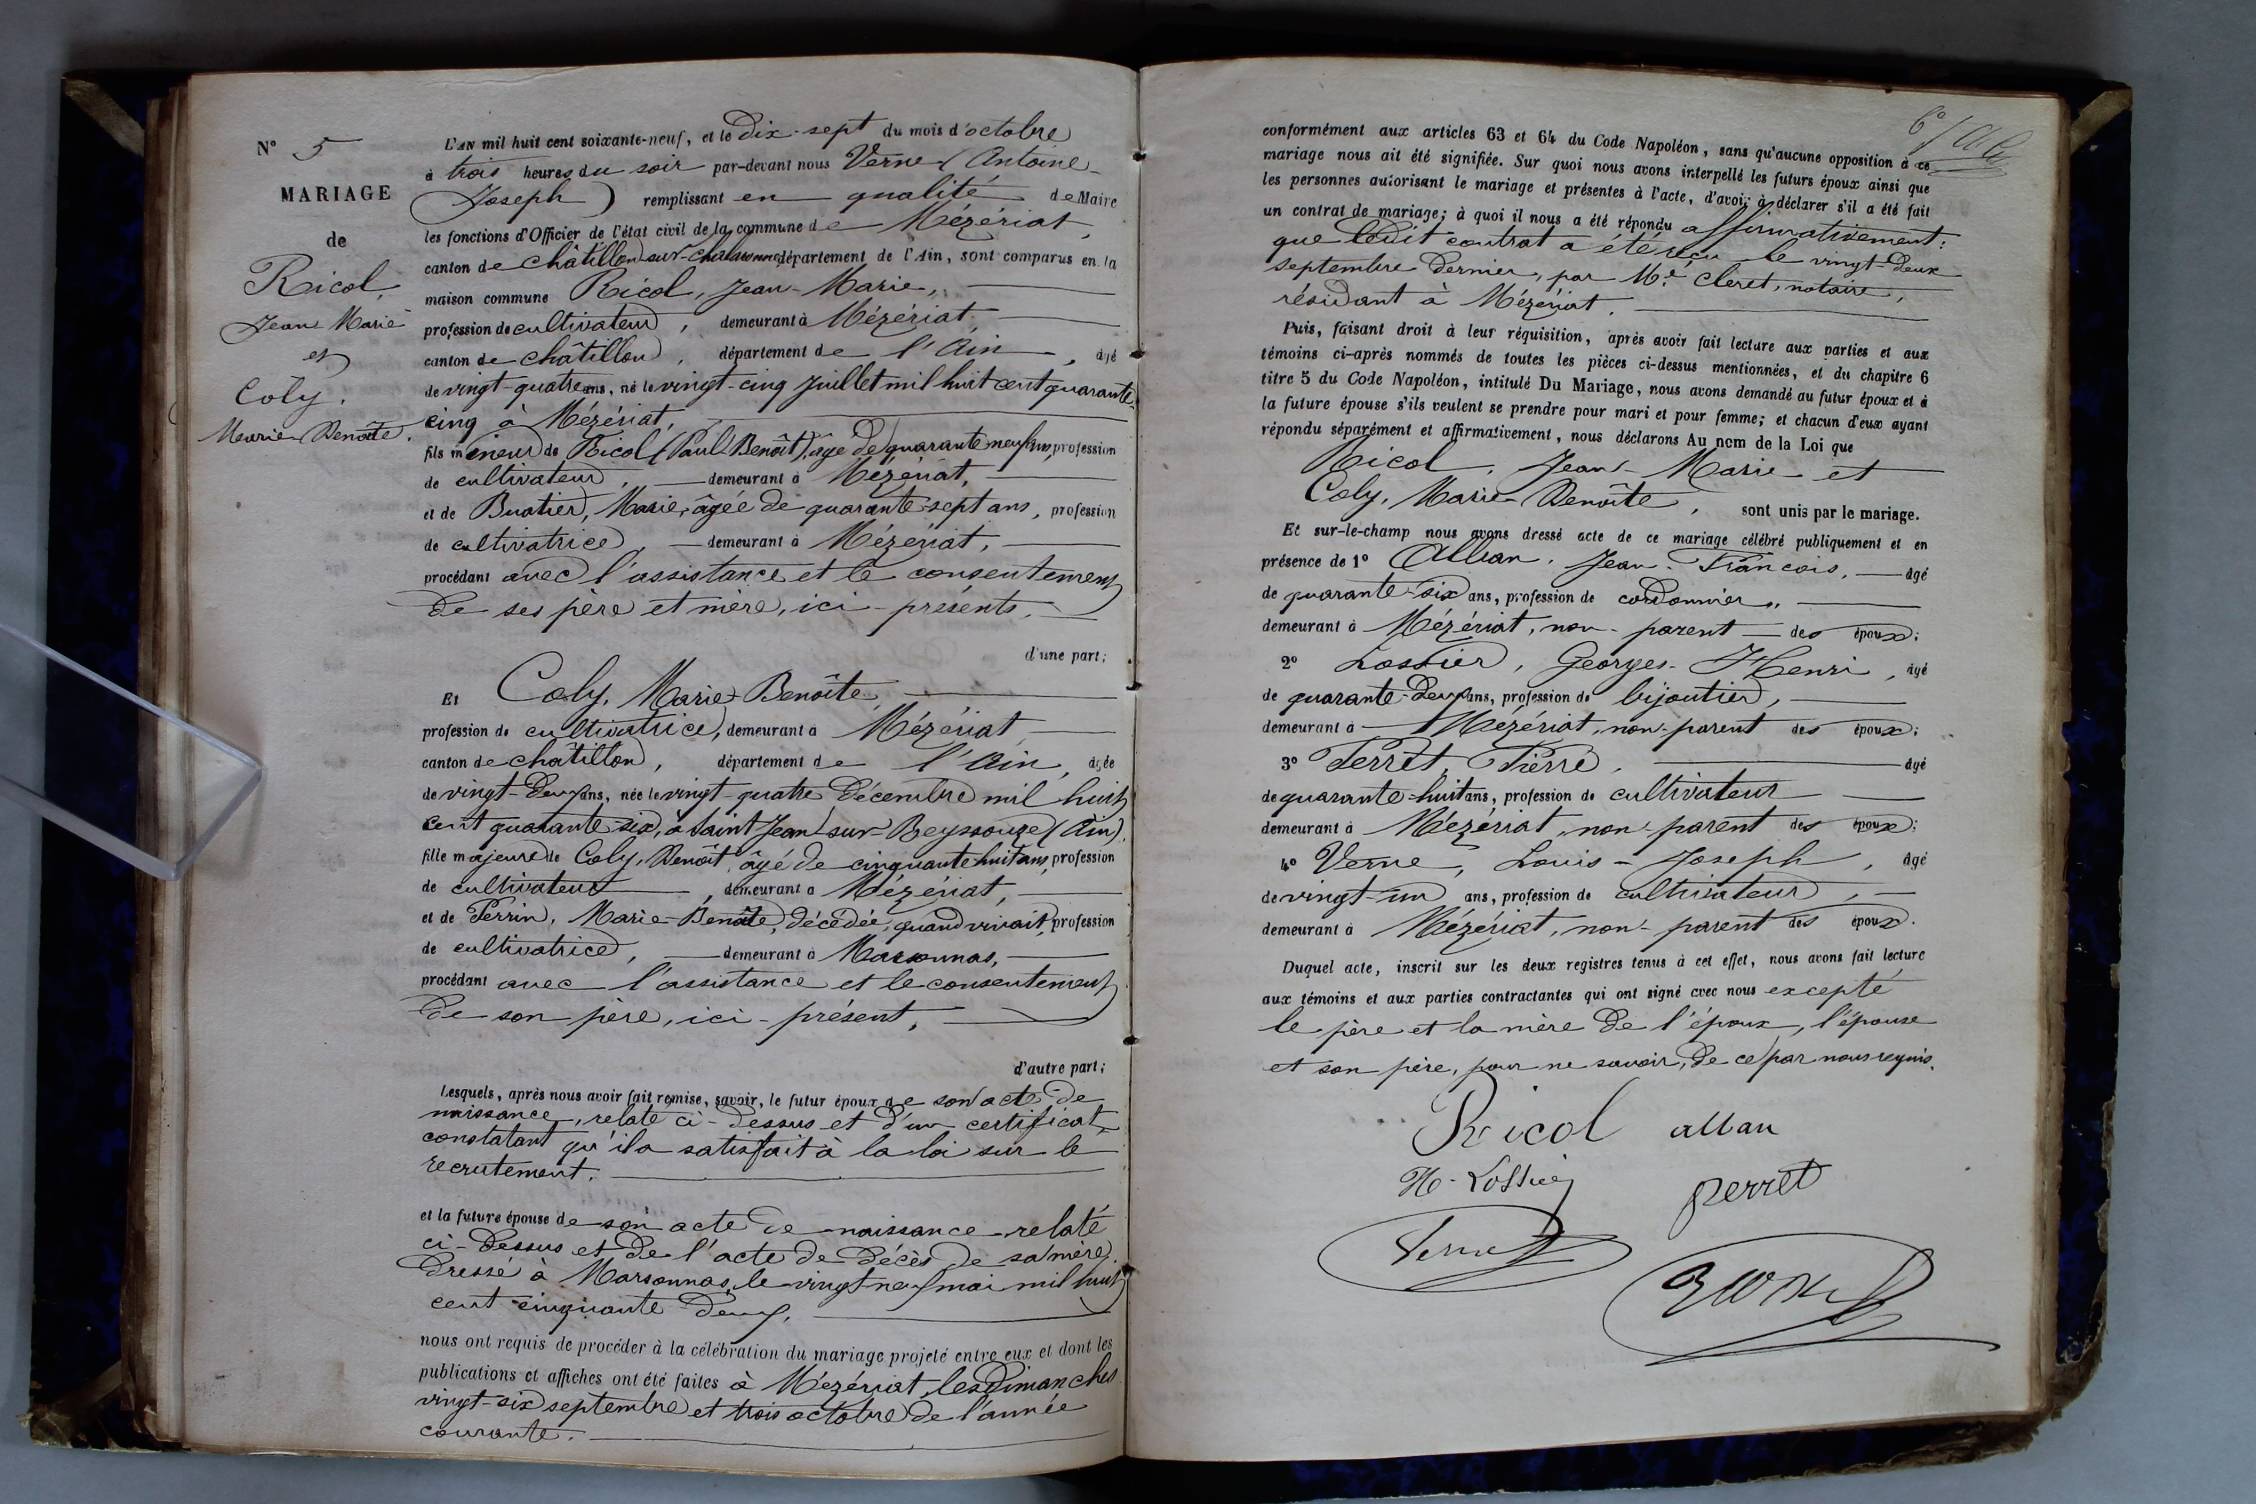 N° 5
MARIAGE
de
Ricol,
Jean-Marie
et
Coly,
Marie-Benoîte.
L'AN mil huit cent soixante-neuf, et le Dix-sept du mois d'octobre
à trois heures du soir par-devant nous Verne (Antoine-
Joseph) remplissant en qualité de Maire
les fonctions d'Officier de l'état civil de la commune de Mézériat,
canton de châtillon-sur-chalaronne, département de l'Ain, sont comparus en la
maison commune Ricol, Jean-Marie,
profession de cultivateur, demeurant à Mézériat,
canton de châtillon, département de l'Ain, âgé
de vingt-quatre ans, né le vingt-cinq Juillet mil huit cent quarante-
cinq à Mézériat,
fils mineur de Ricol (Paul Benoît), âgé de quarante neuf ans, profession
de cultivateur, demeurant à Mézériat,
et de Buatier, Marie, âgée de quarante-sept ans, profession
de cultivatrice, demeurant à Mézériat,
procédant avec l'assistance et le consentement
de ses père et mère, ici-présents,
d'une part;
Et Coly, Marie-Benoîte,
profession de cultivatrice, demeurant à Mézériat,
canton de châtillon, département de l'Ain, âgée
de vingt-deux ans, née le vingt-quatre Décembre mil huit
cent quarante-six, à Saint Jean-sur-Reyssouze (Ain),
fille majeure de Coly, Benoît, âgé de cinquante-huit ans, profession
de cultivateur, demeurant à Mézériat,
et de Perrin, Marie-Benoîte, décédée, quand vivait, profession
de cultivatrice, demeurant à Marsonnas,
procédant avec l'assistance et le consentement
de son père, ici-présent,
d'autre part;
Lesquels, après nous avoir fait remise, savoir, le futur époux de son acte de
naissance, relaté ci-dessus et d'un certificat
constatant qu'il a satisfait à la loi sur le
recrutement.
et la future épouse de son acte de naissance relaté
ci-dessus et de l'acte de décès de sa mère,
dressé à Marsonnas, le vingt neuf mai mil huit
cent cinquante deux,
nous ont requis de procéder à la célébration du mariage projeté entre eux et dont les
publications et affiches ont été faites à Mézériat, les Dimanches
vingt-six septembre et trois octobre de l'année
courante.
conformément aux articles 63 et 64 du Code Napoléon, sans qu'aucune opposition à ce
mariage nous ait été signifiée. Sur quoi nous avons interpellé les futurs époux ainsi que
les personnes autorisant le mariage et présentes à l'acte, d'avoir à déclarer s'il a été fait
un contrat de mariage; à quoi il nous a été répondu affirmativement:
que ledit contrat a été reçu le vingt-deux
septembre dernier, par Me Cleret, notaire,
résidant à Mézériat.
Puis, faisant droit à leur réquisition, après avoir fait lecture aux parties et aux
témoins ci-après nommés de toutes les pièces ci-dessus mentionnées, et du chapitre 6
titre 5 du Code Napoléon, intitulé Du Mariage, nous avons demandé au futur époux et à
la future épouse s'ils veulent se prendre pour mari et pour femme; et chacun d'eux ayant
répondu séparément et affirmativement, nous déclarons Au nom de la Loi que
Ricol, Jean-Marie et
Coly, Marie-Benoîte, sont unis par le mariage.
Et sur-le-champ nous avons dressé acte de ce mariage célébré publiquement et en
présence de 1° Alban, Jean-François, âgé
de quarante-six ans, profession de cordonnier,
demeurant à Mézériat, non-parent des époux;
2° Lossier, Georges-Henri, âgé
de quarante-deux ans, profession de bijoutier,
demeurant à Mézériat, non-parent des époux;
3° Perret, Pierre, âgé
de quarante-huit ans, profession de cultivateur
demeurant à Mézériat, non-parent des époux;
4° Verne, Louis-Joseph, âgé
de vingt-un ans, profession de cultivateur,
demeurant à Mézériat, non-parent des époux.
Duquel acte, inscrit sur les deux registres tenus à cet effet, nous avons fait lecture
aux témoins et aux parties contractantes qui ont signé avec nous excepté
le père et la mère de l'époux, l'épouse
et son père, pour ne savoir, de ce par nous requis.
Ricol alban
H. Lossier perret
Verne